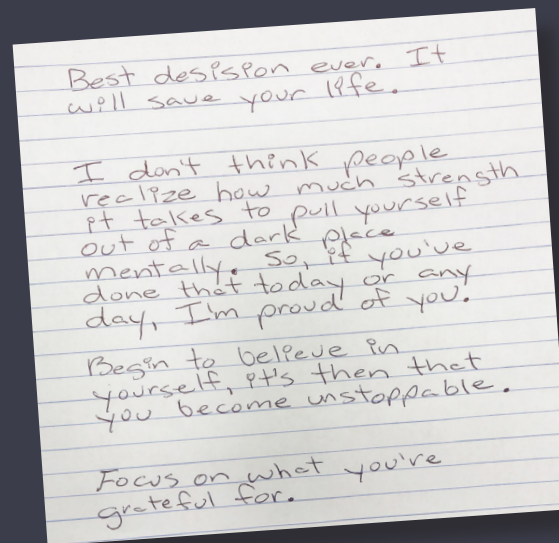 Best desision ever. It
will save your life.
I don't think people
realize how much strength
it takes to pull yourself
out of a dark place
mentally. So, if you've
done that today or any
day, I'm proud of you.
Begin to believe in
yourself, it's then that
you become unstoppable.
Focus on what you're
grateful for.